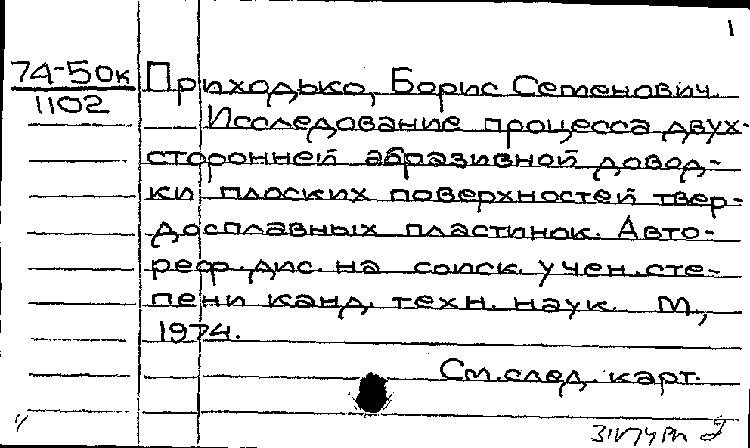 1
74-50к
1102
Приходько, Борис Семенович.
Исследование процесса двух-
сторонней абразивной довод-
ки плоских поверхностей твер-
досплавных пластинок. Авто-
реф. дис. на соиск. учен. сте-
пени канд. техн. наук. М.,
1974.
См. след. карт.